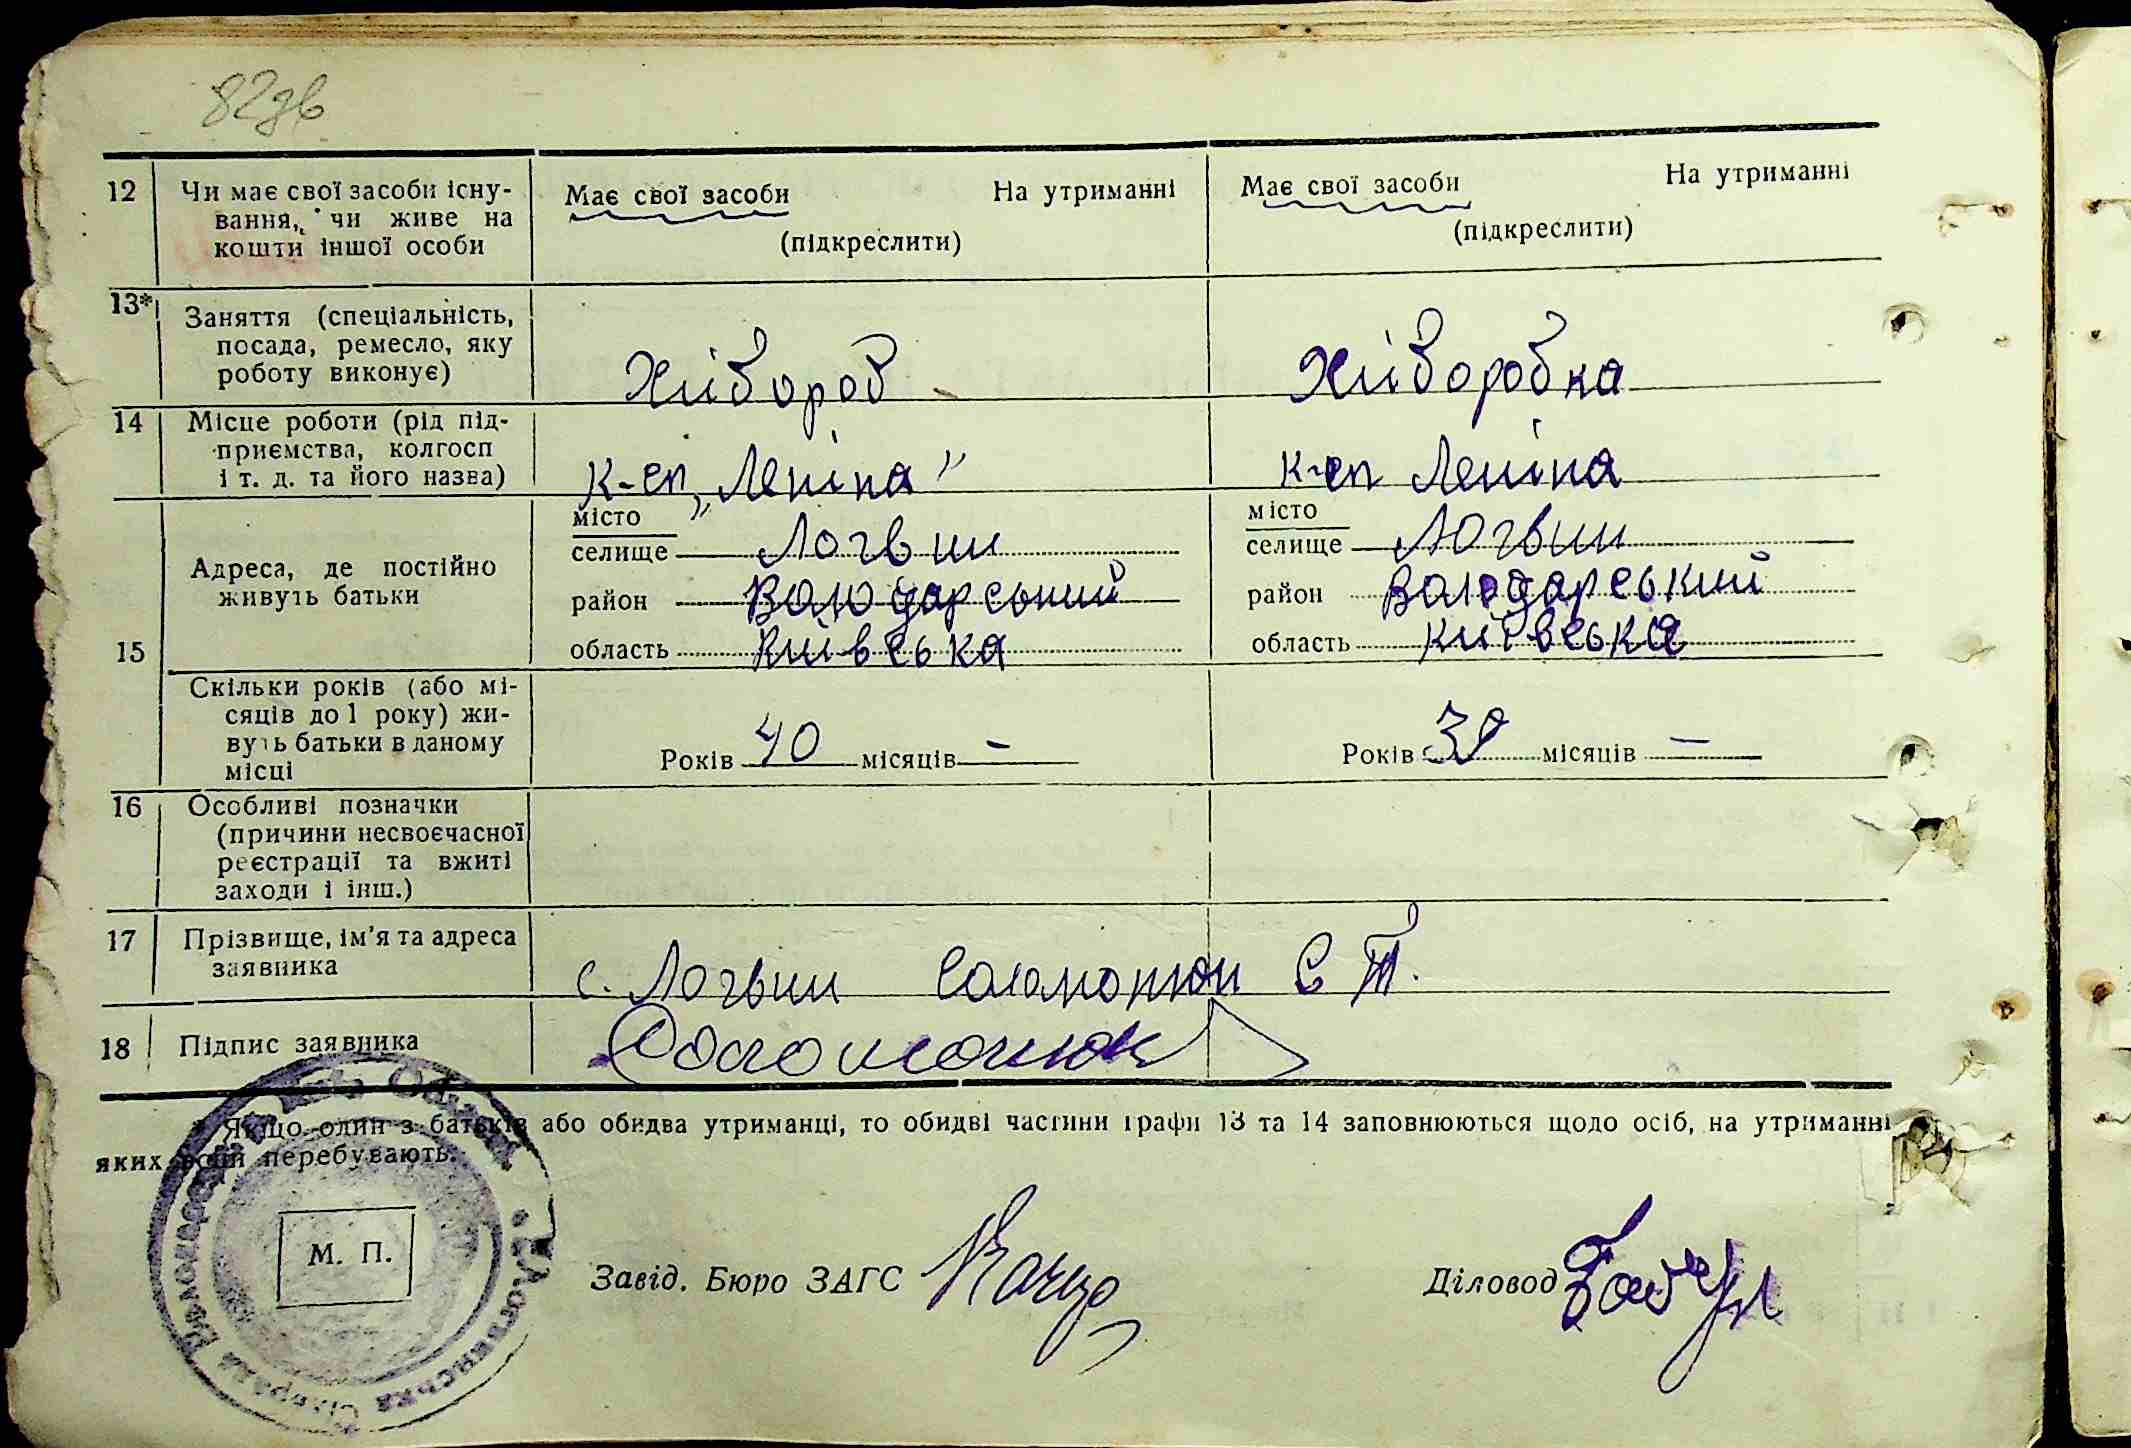 82зв
12 Чи має свої засоби існу-
вання, чи живе на
кошти іншої особи
Має свої засоби На утриманні
(підкреслити)
Має свої засоби На утриманні
(підкреслити)
13* Заняття (спеціальність,
посада, ремесло, яку
роботу виконує)
Хлібороб
Хліборобка
14 Місце роботи (рід під-
приємства, колгосп
і т. д. та його назва)
к-сп „Леніна”
к-сп Леніна
15 Адреса, де постійно
живуть батьки
місто
селище Логвин
район Володарський
область Київська
місто
селище Логвин
район Володарський
область Київська
Скільки років (або мі-
сяців до 1 року) жи-
вуть батьки в даному
місці
Років 40 місяців –
Років місяців –
16 Особливі позначки
(причини несвоєчасної
реєстрації та вжиті
заходи і інш.)
17 Прізвище, ім'я та адреса
заявника
с. Логвин Соломонюк С Т.
18 Підпис заявника
Соломонюк
* Якщо один з батьків або обидва утриманці, то обидві частини графи 13 та 14 заповнюються щодо осіб, на утриманні
яких вони перебувають.
М. П.
Завід. Бюро ЗАГС
Діловод
Логвинська Сільрада